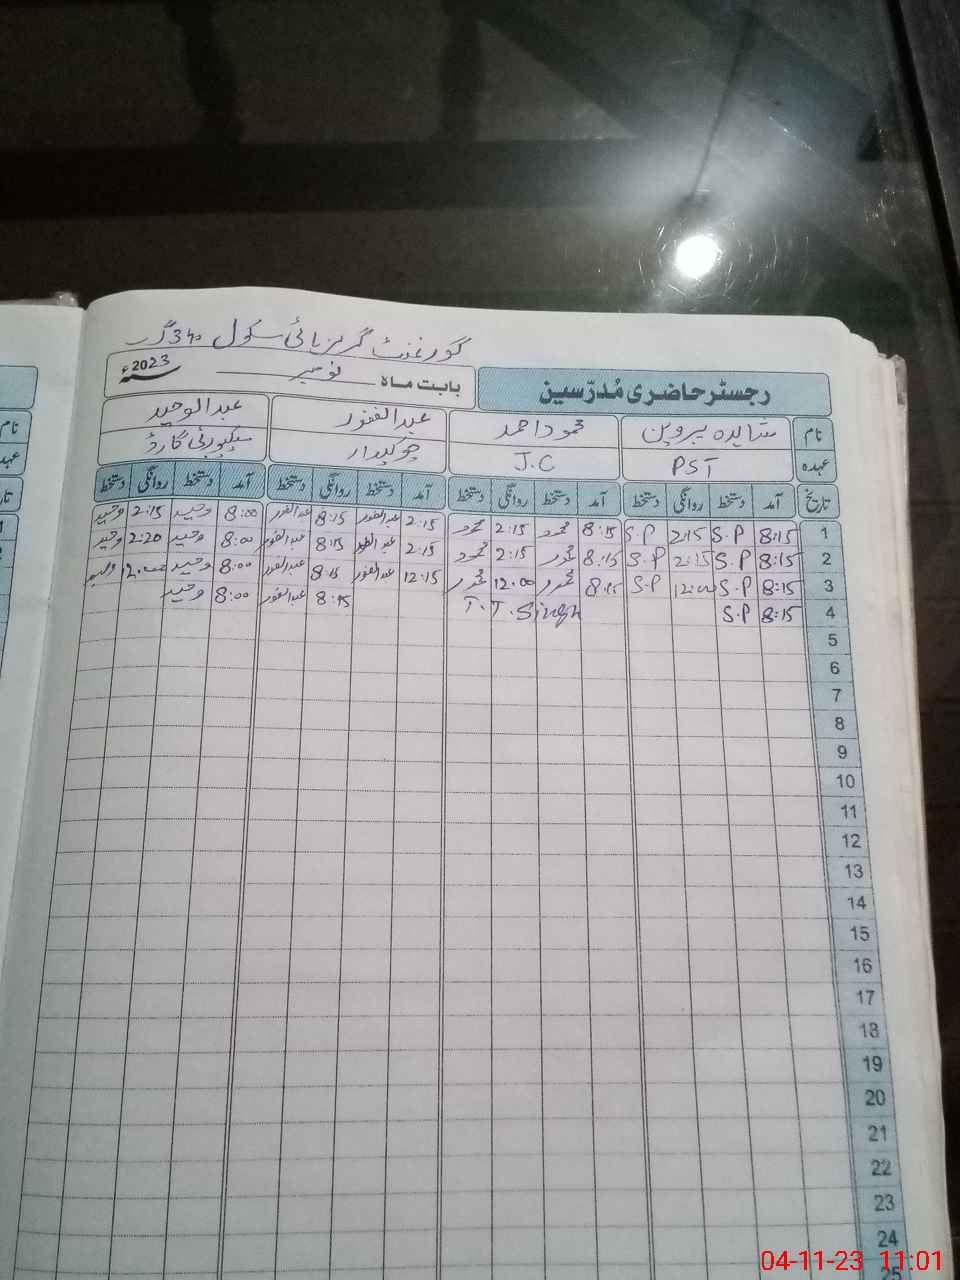 گورنمنٹ گرلز ہائی سکول 34 گ
رجسٹر حاضری مُدرّسین بابت ماہ نومبر سنہ 2023ء
نام شاہدہ پروین محمود احمد عبدالغفور عبدالوحید
عہدہ PST J.C چوکیدار سیکیورٹی گارڈ
تاریخ آمد دستخط روانگی دستخط آمد دستخط روانگی دستخط آمد دستخط روانگی دستخط آمد دستخط روانگی دستخط
1 8:15 S.P 2:15 S.P 8:15 محمود 2:15 محمود 2:15 عبدالغفور 8:15 عبدالغفور 8:00 وحید 2:15 وحید
2 8:15 S.P 2:15 S.P 8:15 محمود 2:15 محمود 2:15 عبدالغفور 8:15 عبدالغفور 8:00 وحید 2:20 وحید
3 8:15 S.P 12:00 S.P 8:15 محمود 12:00 محمود 12:15 عبدالغفور 8:15 عبدالغفور 8:00 وحید 12:00 وحید
4 8:15 S.P T.T.Singh 8:15 عبدالغفور 8:00 وحید
5
6
7
8
9
10
11
12
13
14
15
16
17
18
19
20
21
22
23
24
25
نام
عہدہ
تاریخ
04-11-23 11:01